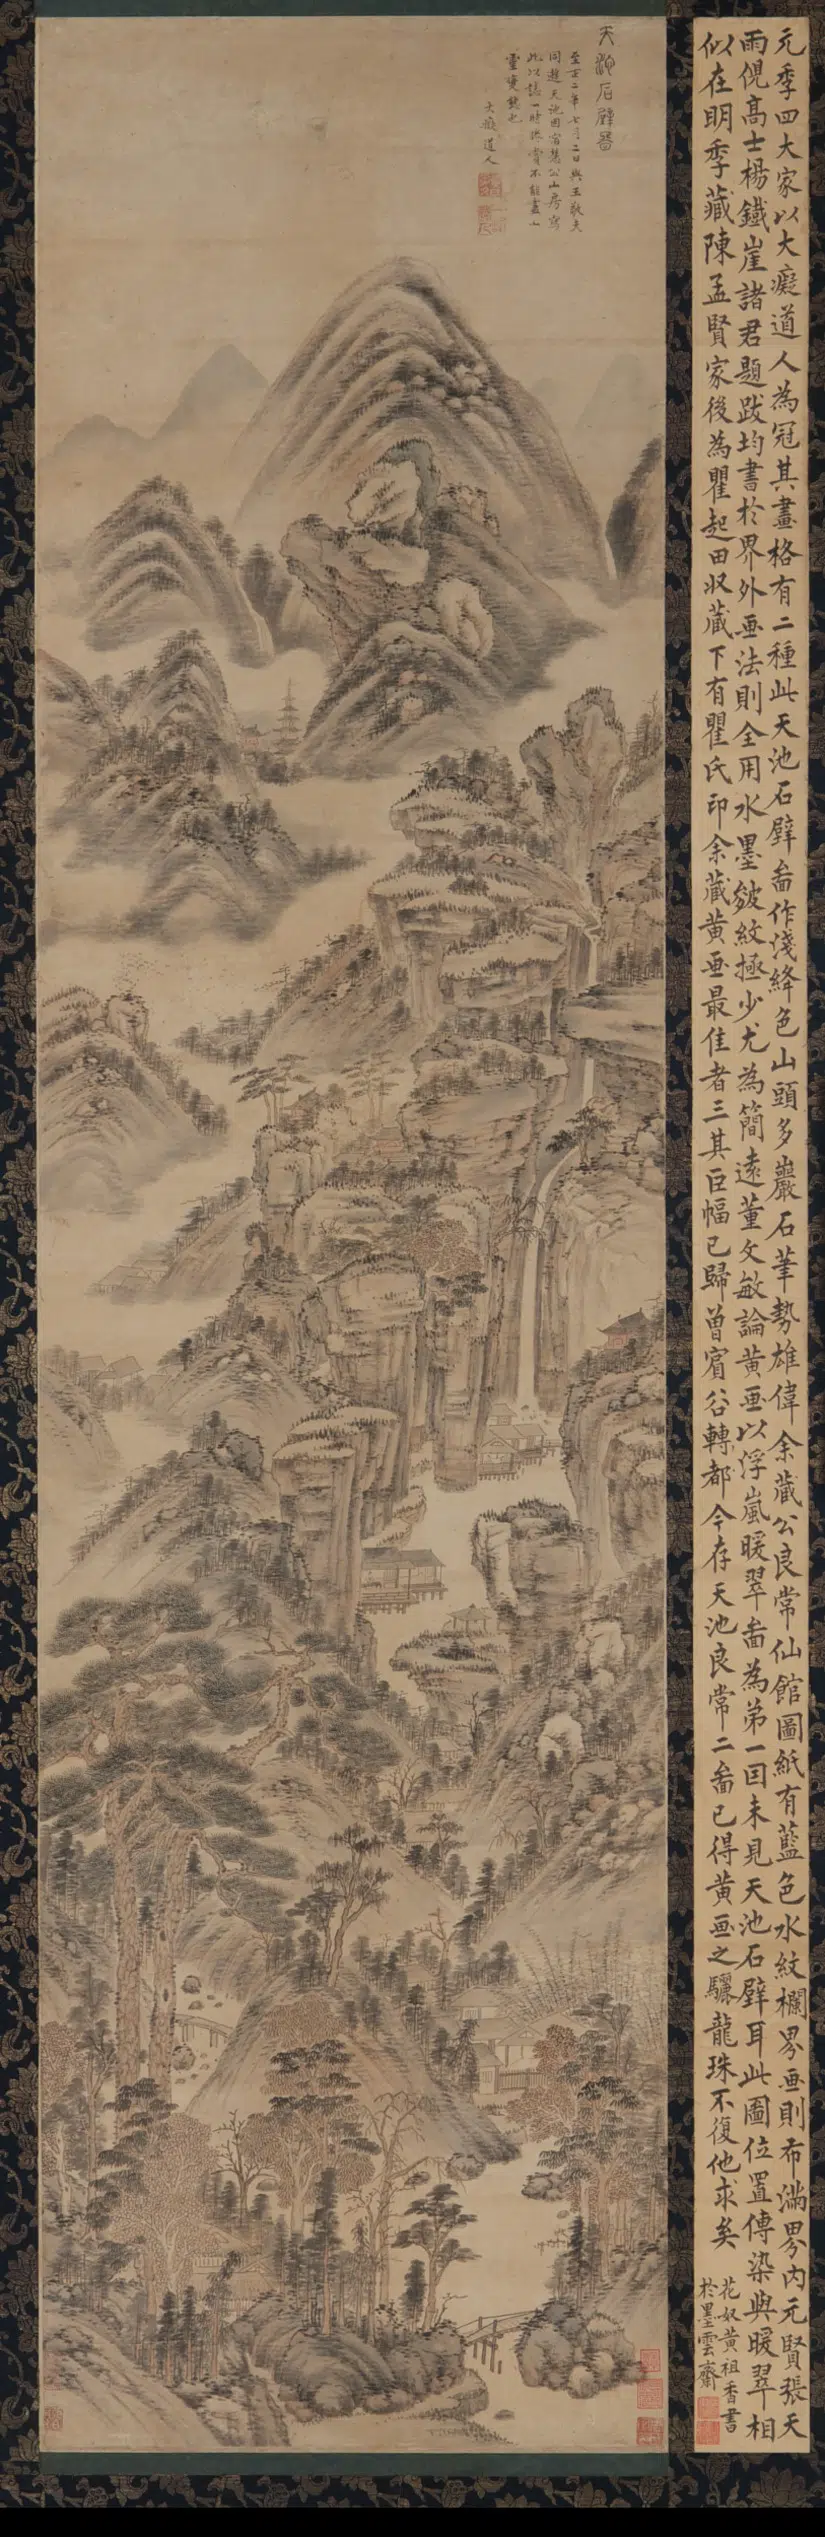 天池石壁圖
至正二年七月二日與王敬夫
同遊天池因宿菴公山房寫
此以誌一時勝賞不能盡山
靈變態也
大癡道人
元季四大家以大癡道人為冠其畫格有二種此天池石壁啚作淺絳色山頭多巖石筆勢雄偉余藏公良常仙館圖紙有藍色水紋欄界畫則布滿界內元賢張天
雨倪高士楊鐵崖諸君題跋均書於界外畫法則全用水墨皴紋極少尤為簡遠董文敏論黃畫以浮嵐暖翠啚為弟一因未見天池石壁耳此圖位置傳染與暖翠相
似在明季藏陳孟賢家後為瞿起田收藏下有瞿氏印余藏黃畫最佳者三其巨幅已歸曾賓谷轉都今存天池良常二啚已得黃畫之驪龍珠不復他求矣
花奴黃祖香書
於墨雲齋